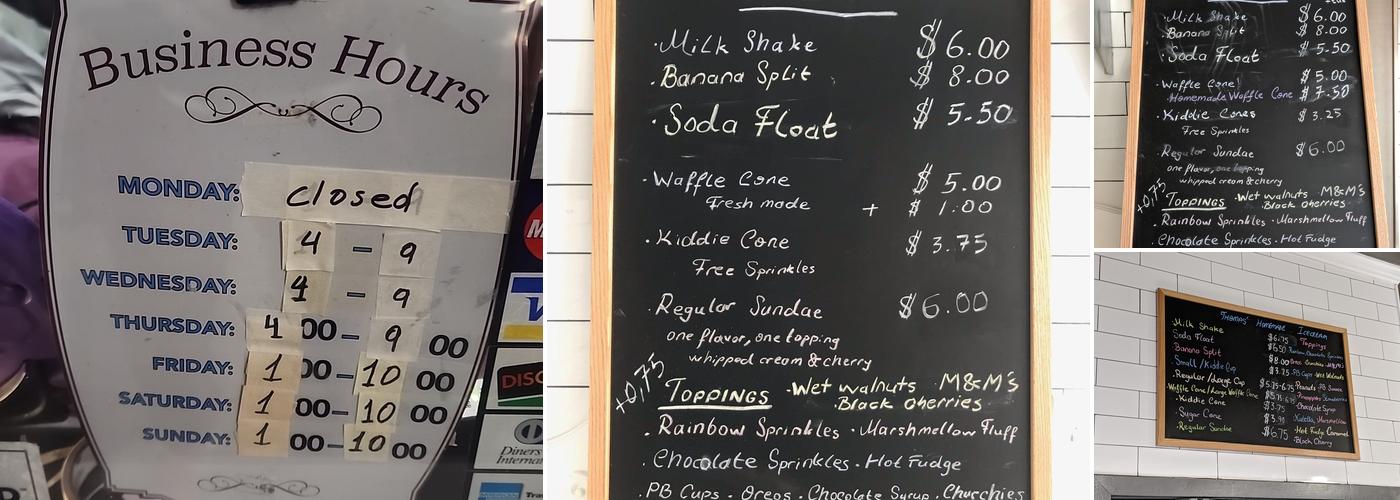 Business Hours
MONDAY: closed
TUESDAY: 4 - 9
WEDNESDAY: 4 - 9
THURSDAY: 4 00 - 9 00
FRIDAY: 1 00 - 10 00
SATURDAY: 1 00 - 10 00
SUNDAY: 1 00 - 10 00
DISC
Diners
Internat
· Milk Shake $ 6.00
· Banana Split $ 8.00
· Soda Float $ 5.50
· Waffle Cone $ 5.00
Fresh made + $ 1.00
· Kiddie Cone $ 3.75
Free Sprinkles
· Regular Sundae $ 6.00
one flavor, one topping
whipped cream & cherry
+0,75
TOPPINGS · Wet walnuts · M&M's
· Black cherries
· Rainbow Sprinkles · Marshmellow Fluff
· Chocolate Sprinkles · Hot Fudge
· PB Cups · Oreos · Chocolate Syrup
· Milk Shake $ 6.00
· Banana Split $ 8.00
· Soda Float $ 5.50
· Waffle Cone $ 5.00
Homemade Waffle Cone $ 7.50
· Kiddie Cones $ 3.25
Free Sprinkles
· Regular Sundae $ 6.00
one flavor, one topping
whipped cream & cherry
+0,75
TOPPINGS · Wet walnuts · M&M's
· Black cherries
· Rainbow Sprinkles · Marshmellow Fluff
· Chocolate Sprinkles · Hot Fudge
Homemade Icecream
· Milk Shake $6.75 Toppings
· Soda Float $6.50
· Banana Split $8.00
· Small/Kiddie Cup $3.75
· Regular/Large Cup
· Waffle Cone/Large Waffle Cone
· Kiddie Cone $3.75 Chocolate Syrup
· Sugar Cone
· Regular Sundae $6.75 Hot Fudge Caramel
Black Cherry